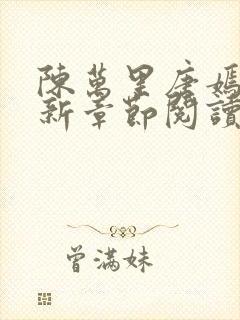 陳萬里唐嫣
新章節閱讀
曾滿妹